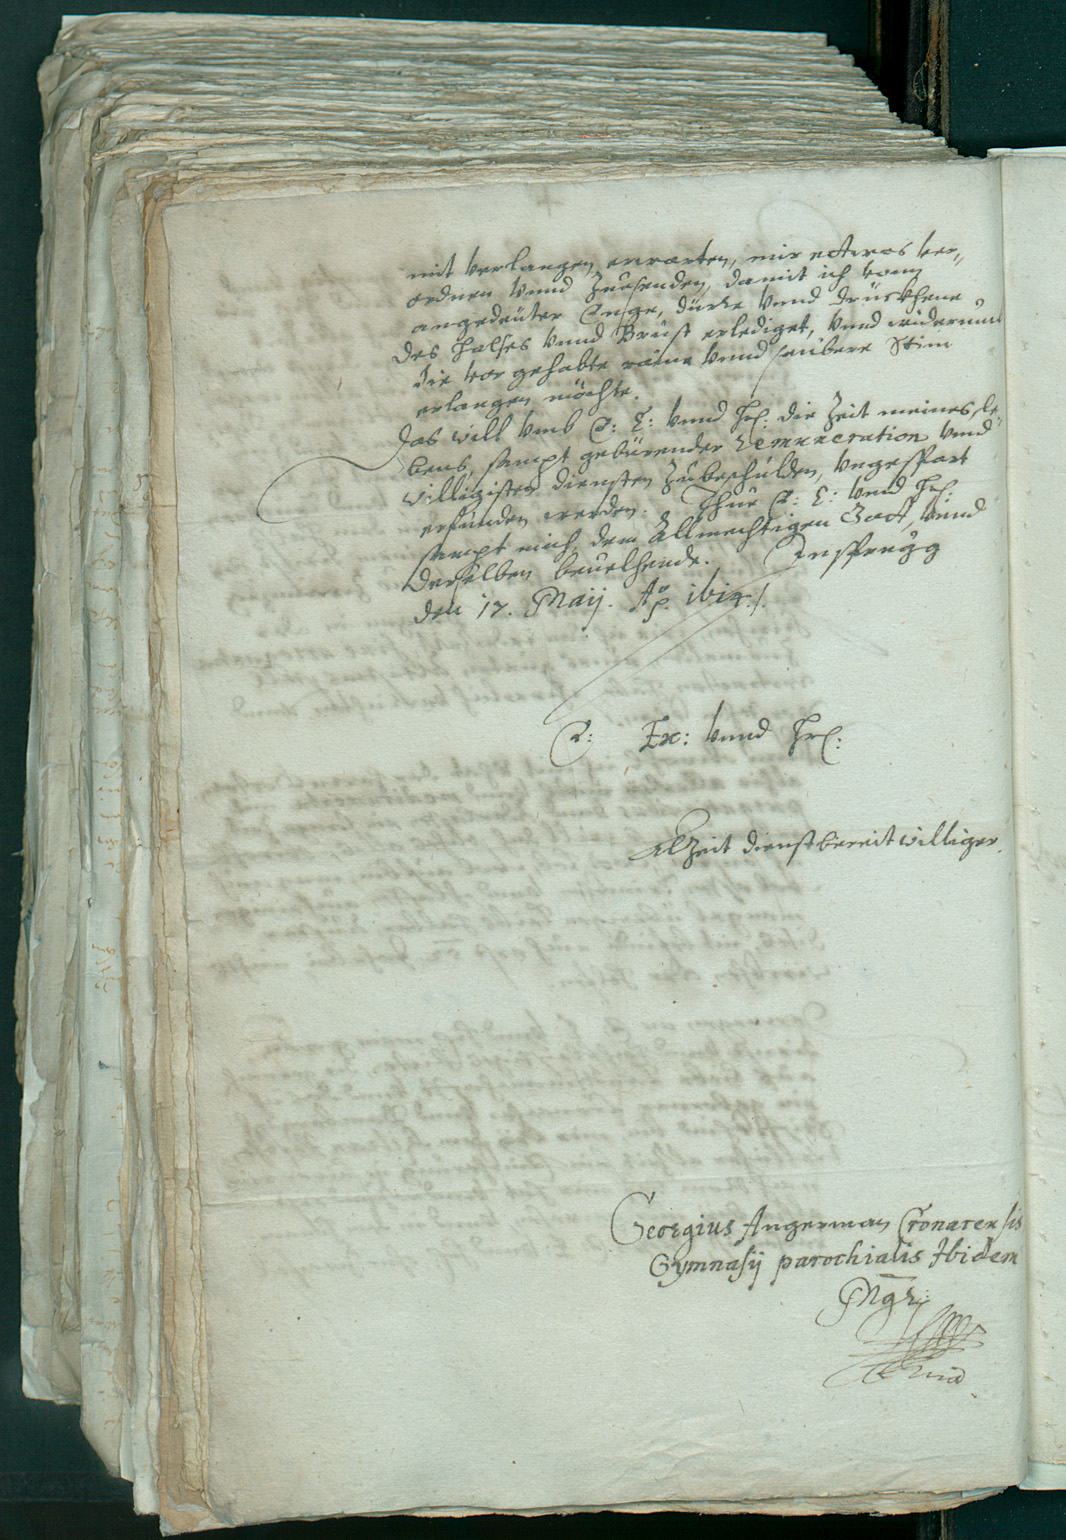 mit verlangen erwarten, mir ettwas ver„
ordnen vnnd Zuesenden, damit ich vonn
angedeüter Enge, dürre vnnd drückhene
des Halses vnnd Brüst erlediget, vnnd widerumb
die vor gehabte raine vnnd saübere Stim
erlangen möchte.
Das will vmb E: E: vnnd Hrl: die Zeit meines le„
bens, sampt gebürender Remuneration vnnd
willigisten diensten Zubeschülden, vngesspart
erfunden werden. Thue E: E: vnnd Hrl:
sampt mich dem Allmechtigen Gott vnnd
derselben beuelhende. Insprugg
den 17. Maij. Aō. 1614.
E: Ex: vnnd Hrl:
Alzeit dienstbereitwilliger
Georgius Angerman Cronacensis
Gymnasij parochialis Ibidem
Mgr: